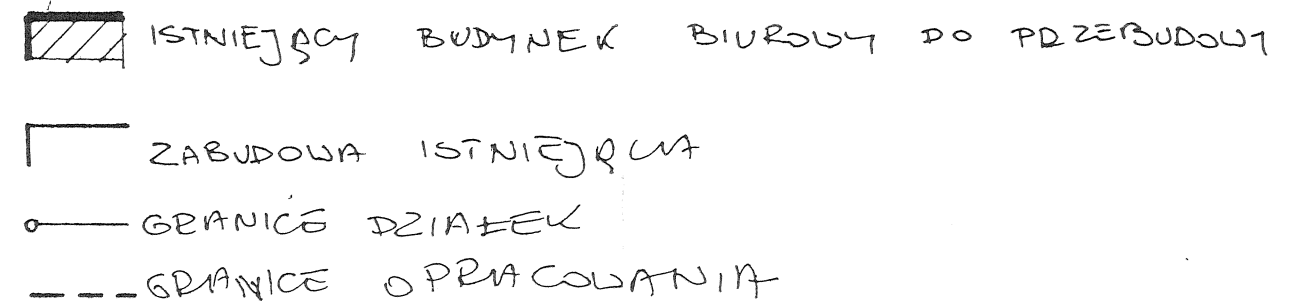 ISTNIEJĄCY BUDYNEK BIUROWY DO PRZEBUDOWY
ZABUDOWA ISTNIEJĄCA
GRANICE DZIAŁEK
GRANICE OPRACOWANIA